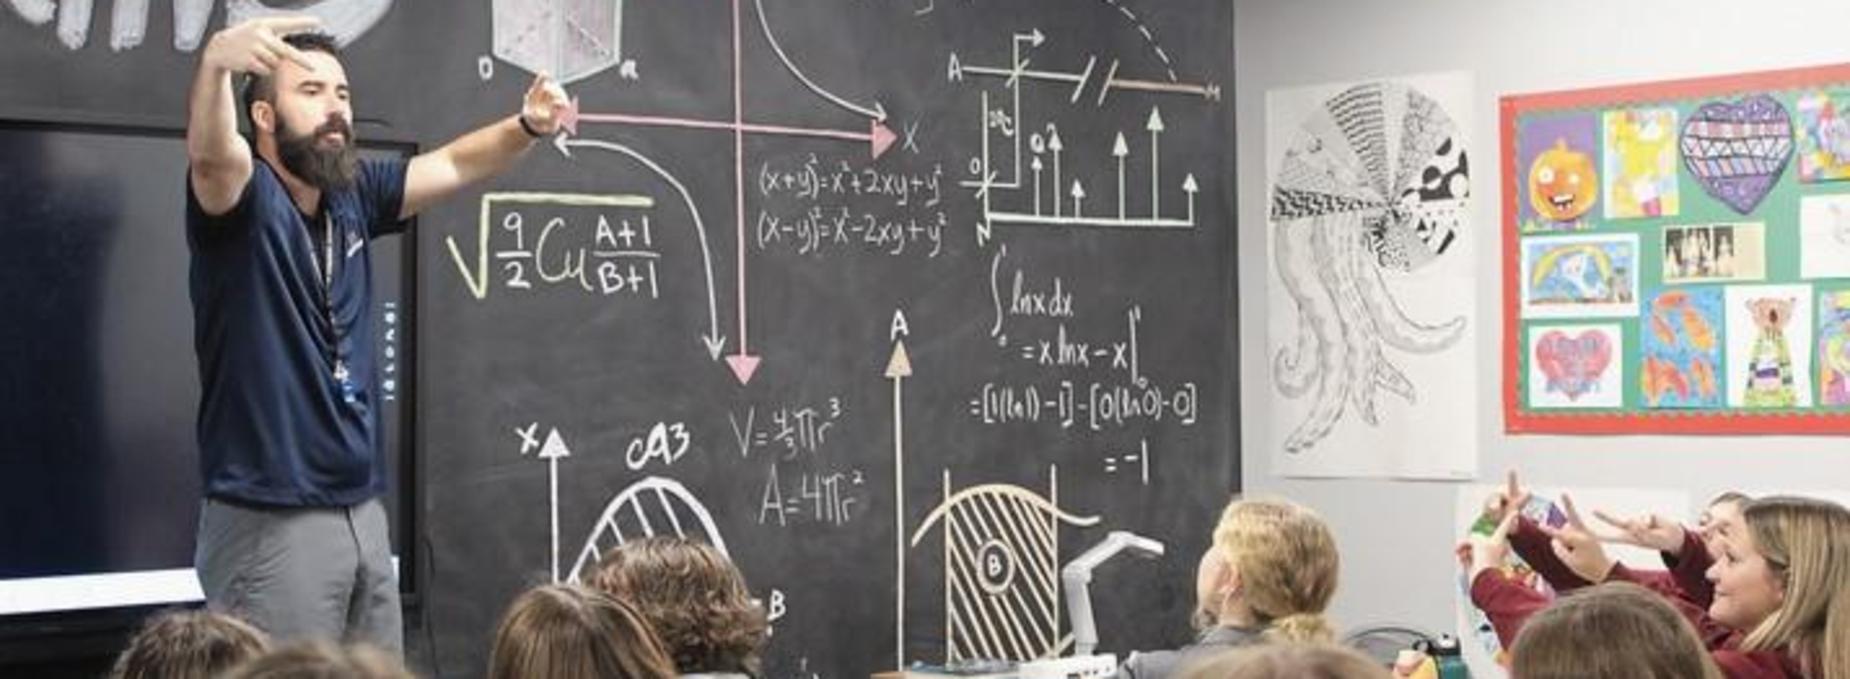 D
R
X
A
M
(x+y)²=x²+2xy+y²
(x-y)²=x²-2xy+y²
N
√ 9/2 Cu A+1/B+1
∫ lnxdx
= x lnx - x|
=[1(ln1)-1]-[0(ln0)-0]
= -1
A
X
V=4/3πr³
A=4πr²
B
B